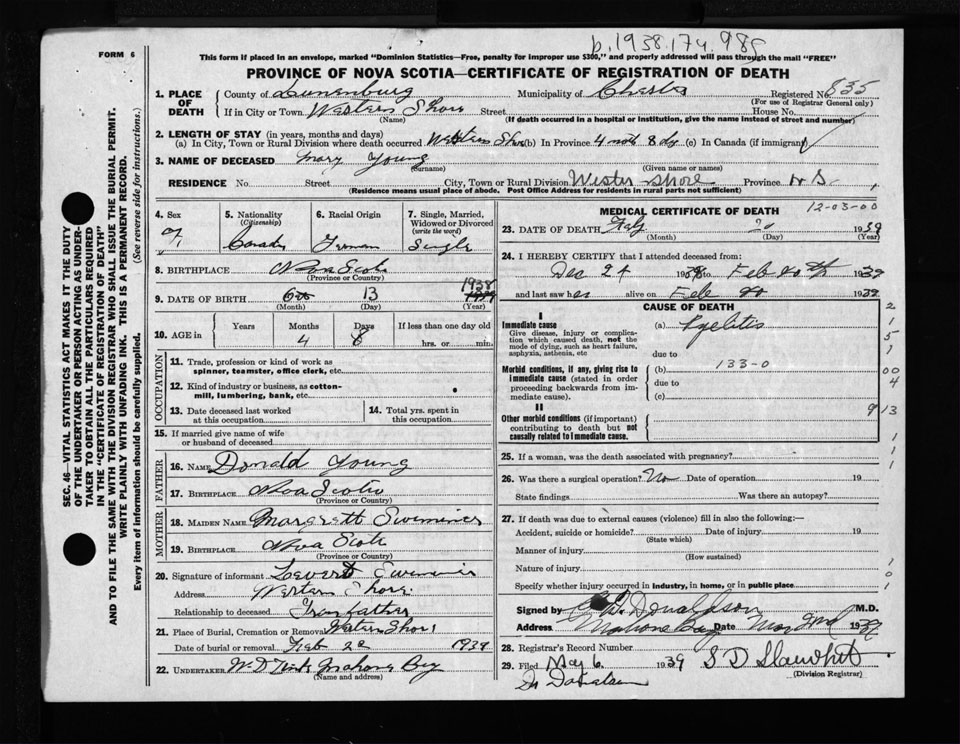 b.1938.174.985
FORM 6
This form if placed in an envelope, marked "Dominion Statistics—Free, penalty for improper use $300," and properly addressed will pass through the mail "FREE"
PROVINCE OF NOVA SCOTIA—CERTIFICATE OF REGISTRATION OF DEATH
SEC. 46—VITAL STATISTICS ACT MAKES IT THE DUTY
OF THE UNDERTAKER OR PERSON ACTING AS UNDER-
TAKER TO OBTAIN ALL THE PARTICULARS REQUIRED
IN THE "CERTIFICATE OF REGISTRATION OF DEATH"
AND TO FILE THE SAME WITH THE DIVISION REGISTRAR WHO SHALL ISSUE THE BURIAL PERMIT.
WRITE PLAINLY WITH UNFADING INK. THIS IS A PERMANENT RECORD.
Every item of information should be carefully supplied. (See reverse side for instructions.)
1. PLACE OF DEATH County of Lunenburg Municipality of Chester Registered No. 835
(For use of Registrar General only)
If in City or Town Western Shore Street House No.
(Name) (If death occurred in a hospital or institution, give the name instead of street and number)
2. LENGTH OF STAY (in years, months and days)
(a) In City, Town or Rural Division where death occurred Western Shore (b) In Province 4 mots 8 dys (c) In Canada (if immigrant)
3. NAME OF DECEASED Mary Young
(Surname) (Given name or names)
RESIDENCE No. Street City, Town or Rural Division Wester Shore Province N S.
(Residence means usual place of abode. Post Office Address for residents in rural parts not sufficient)
4. Sex
5. Nationality (Citizenship)
6. Racial Origin German
7. Single, Married, Widowed or Divorced (write the word) Single
8. BIRTHPLACE Nova Scotia
(Province or Country)
9. DATE OF BIRTH Oct 13 1938
(Month) (Day) (Year)
10. AGE in Years Months Days If less than one day old
4 8 hrs. or min.
OCCUPATION
11. Trade, profession or kind of work as
spinner, teamster, office clerk, etc.
12. Kind of industry or business, as cotton-
mill, lumbering, bank, etc.
13. Date deceased last worked
at this occupation
14. Total yrs. spent in
this occupation
15. If married give name of wife
or husband of deceased
FATHER
16. NAME Donald Young
17. BIRTHPLACE Nova Scotia
(Province or Country)
MOTHER
18. MAIDEN NAME Margrett
19. BIRTHPLACE Nova Scotia
(Province or Country)
20. Signature of informant
Address Western Shore
Relationship to deceased
21. Place of Burial, Cremation or Removal Western Shore
Date of burial or removal Feb 22 1939
22. UNDERTAKER Mahone Bay
(Name and address)
MEDICAL CERTIFICATE OF DEATH
12-03-00
23. DATE OF DEATH Feby 20 1939
(Month) (Day) (Year)
24. I HEREBY CERTIFY that I attended deceased from:
Dec 24 1938 to Feb 20th 1939
and last saw her alive on Feb 20 1939
CAUSE OF DEATH
I
Immediate cause (a) Pyelitis
Give disease, injury or complica-
tion which caused death, not the
mode of dying, such as heart failure,
asphyxia, asthenia, etc due to
Morbid conditions, if any, giving rise to (b) 133-0
immediate cause (stated in order due to
proceeding backwards from im-
mediate cause). (c)
II
Other morbid conditions (if important)
contributing to death but not
causally related to immediate cause.
25. If a woman, was the death associated with pregnancy?
26. Was there a surgical operation? No Date of operation 19
State findings Was there an autopsy?
27. If death was due to external causes (violence) fill in also the following:—
Accident, suicide or homicide? Date of injury 19
(State which)
Manner of injury
(How sustained)
Nature of injury
Specify whether injury occurred in industry, in home, or in public place
Signed by Donaldson M.D.
Address Mahone Bay Date
28. Registrar's Record Number
29. Filed May 6 1939 S D
(Division Registrar)